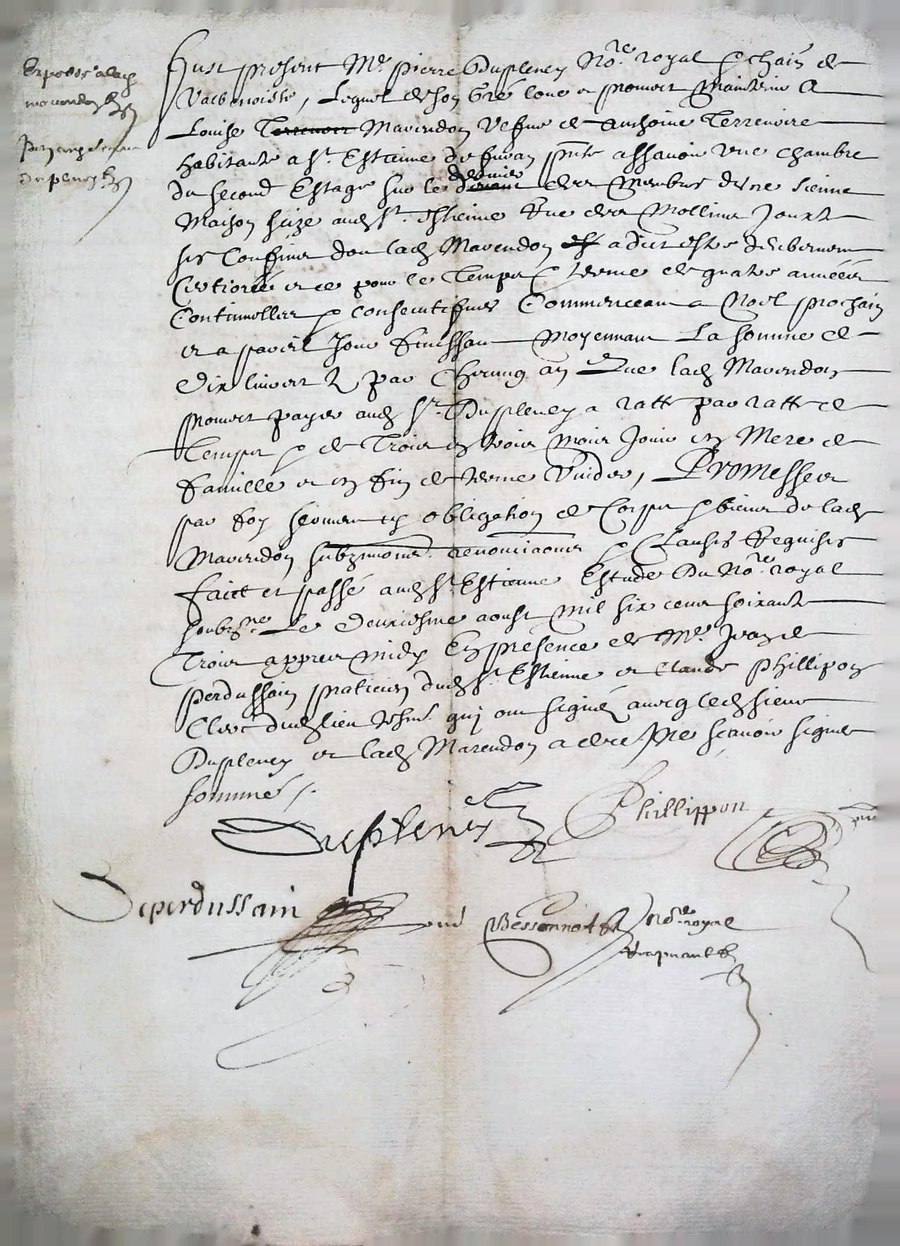 Expedié a lad
marendon
Pareillement
dupleney
Fust present Me pierre Dupleney Nore royal &
Valbenoiste, Lequel de son Gré loue et promect maintenir A
Louise Terrenoire Marendon Vefve de Anthoine Terrenoire
habitante a St Estienne de furan pnte assavoir une chambre
du second Estage sur le devant dernier des Membres d'une sienne
Maison size aud St Estienne Rue des Mollins Jouxte
ses Confins don lad Marendon a dit estre
Certiorée et ce pour le Temps & terme de quatre années
Continuelles & consecutifves Commenceant a Noel prochain
et a pareil Jour finissant moyennant La somme de
Dix livres par Chacung an Que lad Marendon
promect payer aud Sr Dupleney a ratte par ratte de
temps & de Trois en trois mois Jouir en Mere de
famille et en fin de terme Vuider, Promesses
par foy serment & obligation de Corps & biens de lad
Marendon submons renonciaons & Clauses Requises
faict et passé aud St Estienne Estude Du Nore royal
soubzne Le deuxiesme aoust mil six cens soixante
Trois appres midy En presence de Me Jean de
perdussain praticien dud St Estienne et Claude Phillipon
Clerc dud lieu tesms quj ont signé avecq led sieur
Dupleney et lad Marendon a dict ne scavoir signer
sommé /.
Dupleney
Phillippon
Deperdussain
Bessonnat Nore royal